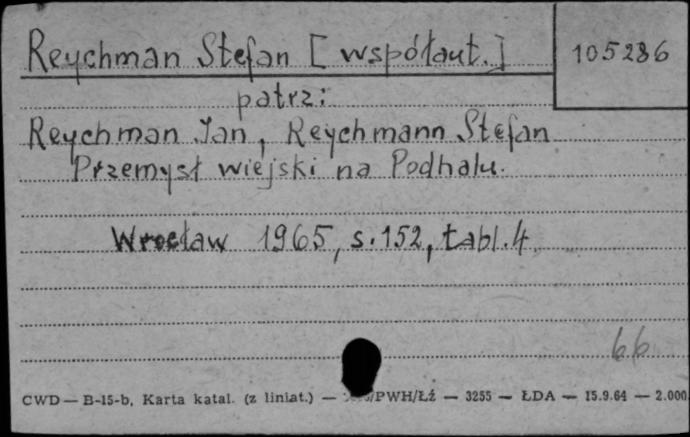 Reychman Stefan [współaut.]
105286
patrz:
Reychman Jan, Reychmann Stefan
Przemysł wiejski na Podhalu.
Wrocław 1965, s. 152, tabl. 4
66
CWD — B-15-b, Karta katal. (z liniat.) — /PWH/Łź — 3255 — ŁDA — 15.9.64 — 2.000